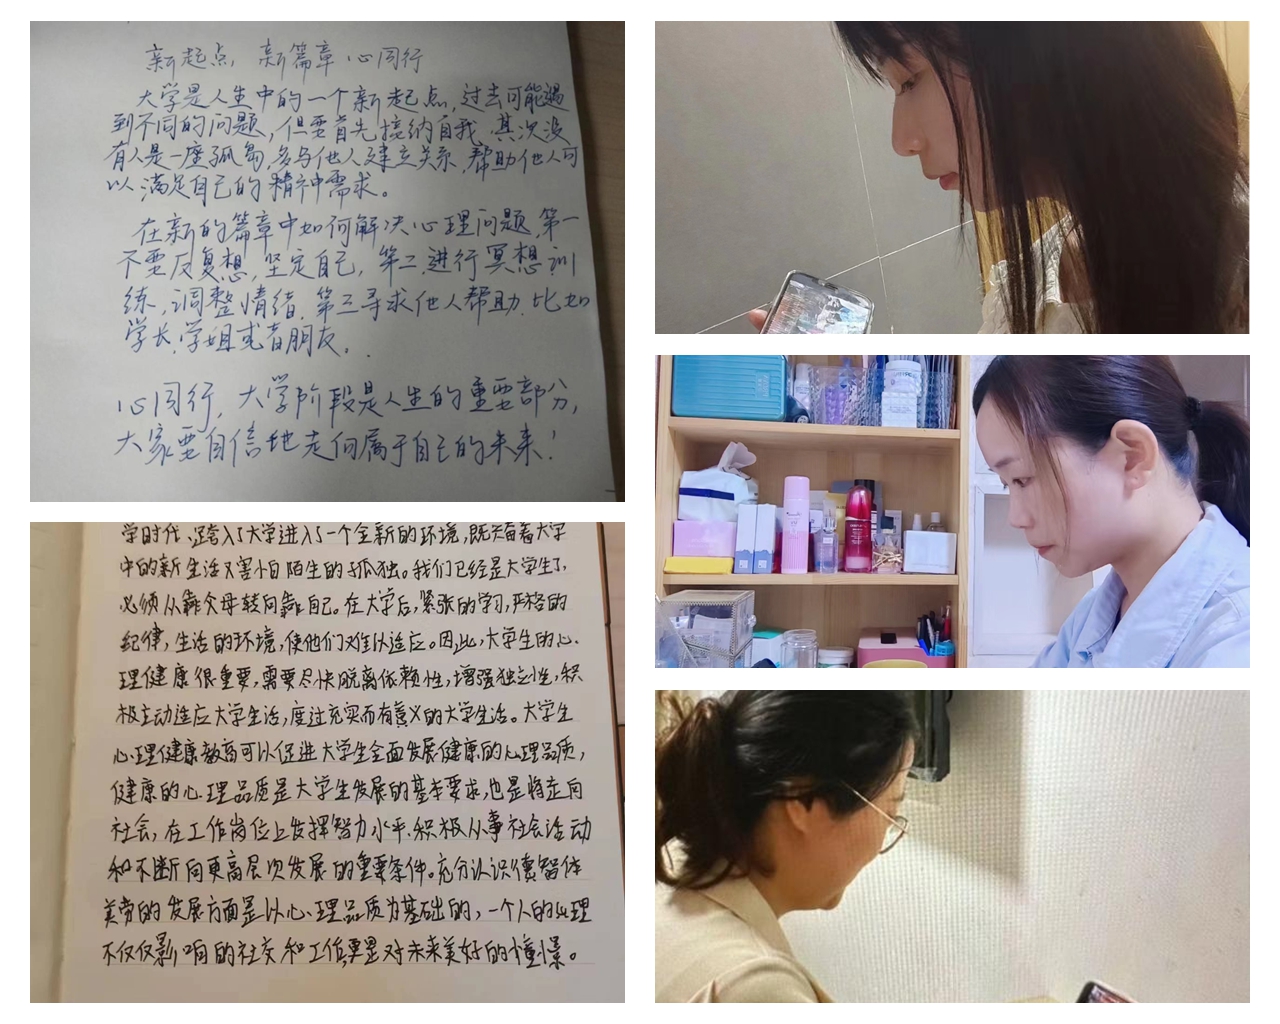 新起点，新篇章，心同行
大学是人生中的一个新起点，过去可能遇
到不同的问题，但要首先接纳自我，其次没
有人是一座孤岛，多与他人建立关系，帮助他人可
以满足自己的精神需求。
在新的篇章中如何解决心理问题，第一
不要反复想，坚定自己，第二，进行冥想训
练，调整情绪，第三寻求他人帮助，比如
学长，学姐或者朋友。
心同行，大学阶段是人生的重要部分，
大家要自信地走向属于自己的未来！
学时代，跨入了大学进入了一个全新的环境，既夹着大学
中的新生活又害怕陌生的孤独。我们已经是大学生了，
必须从靠父母转向靠自己。在大学后，紧张的学习，严格的
纪律，生活的环境，使他们难以适应。因此，大学生的心
理健康很重要，需要尽快脱离依赖性，增强独立性，积
极主动适应大学生活，度过充实而有意义的大学生活。大学生
心理健康教育可以促进大学生全面发展健康的心理品质，
健康的心理品质是大学生发展的基本要求，也是将走向
社会，在工作岗位上发挥智力水平，积极从事社会活动
和不断向更高层次发展的重要条件。充分认识德智体
美劳的发展方面是以心理品质为基础的，一个人的心理
不仅仅影响的社交和工作，更是对未来美好的憧憬。